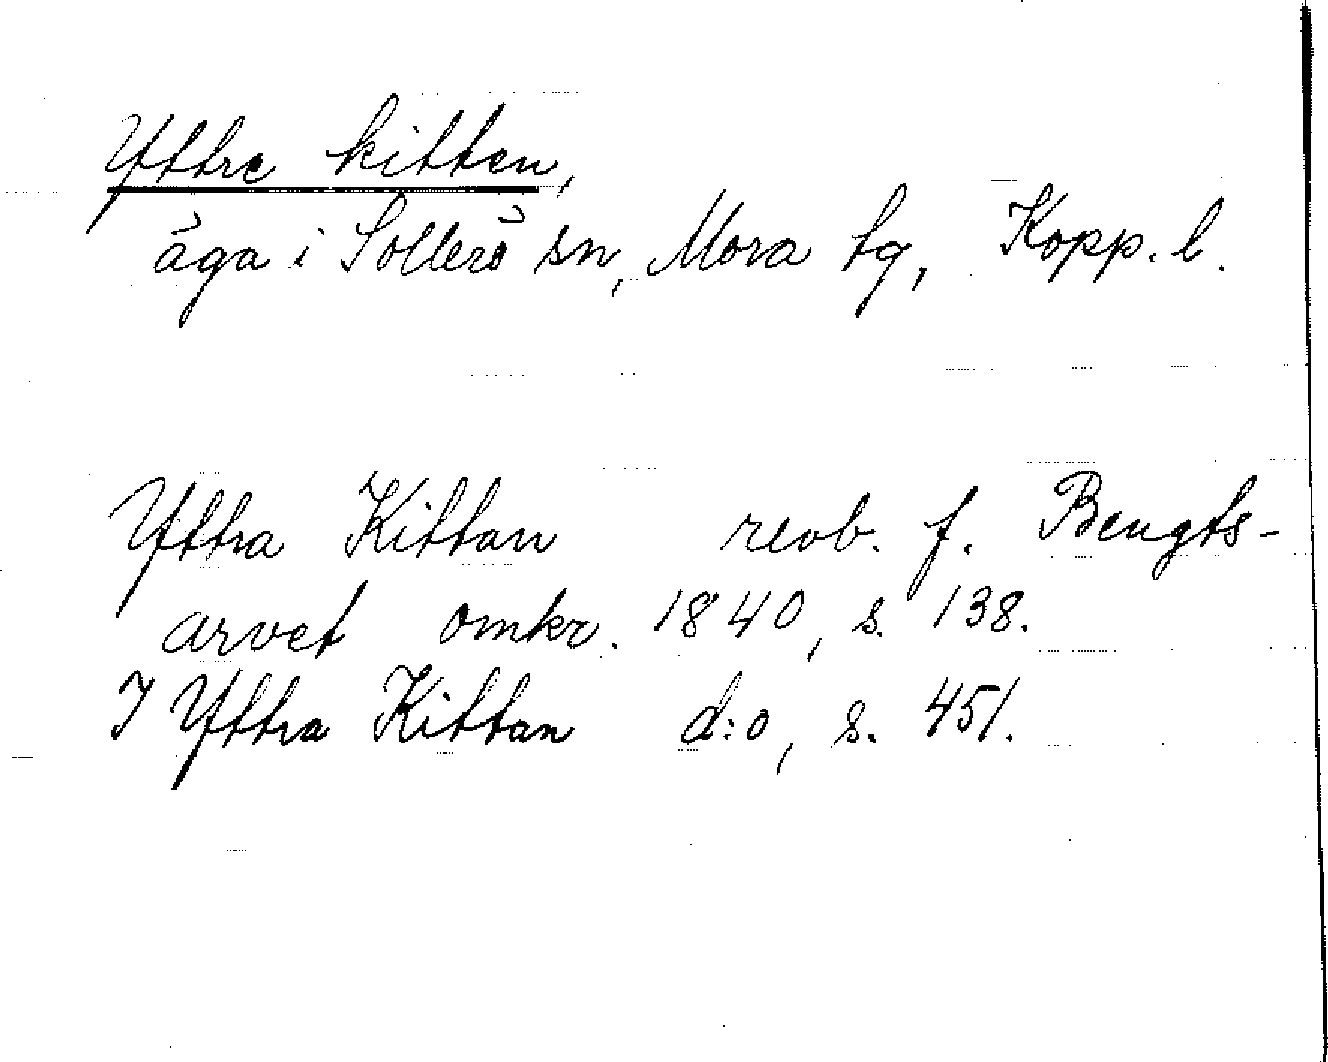 Yttre kitten,
äga i Sollerö sn, Mora tg, Kopp. l.
Yttra Kittan revb. f. Bengts-
arvet omkr. 1840, s. 138.
I Yttra Kittan d:o, s. 451.